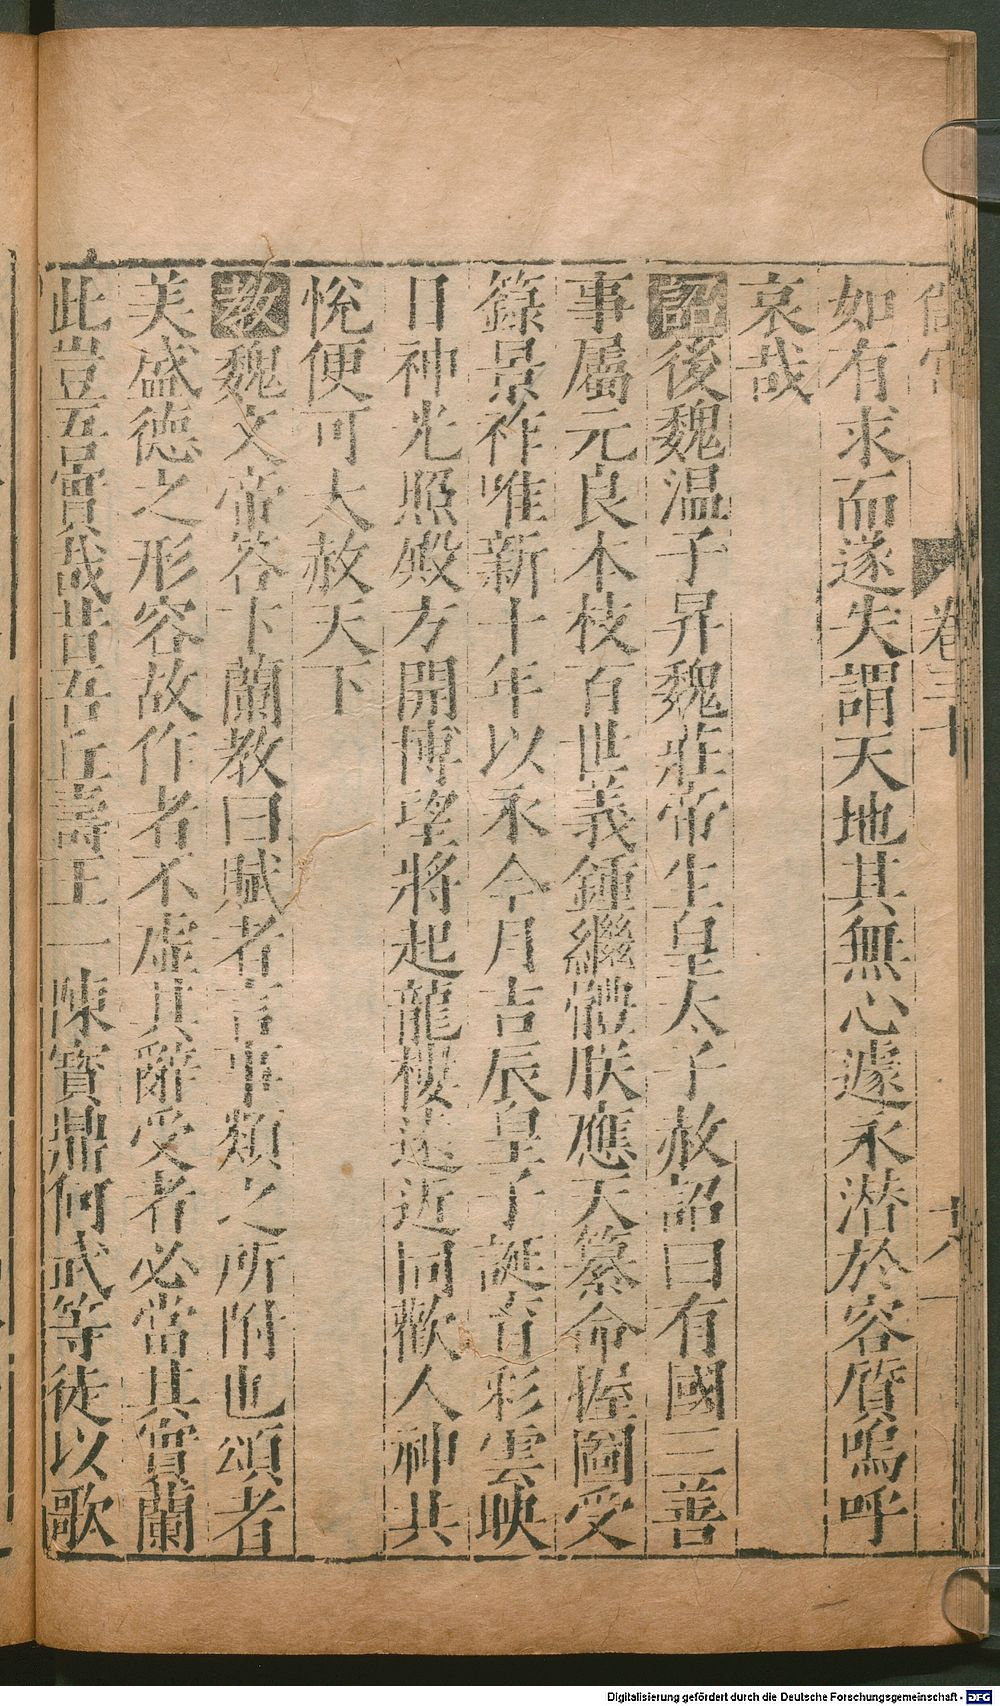 卷三十
如有求而遂失謂天地其無心遽永潛於容質嗚呼
哀哉
詔後魏温子昇魏莊帝生皇太子赦詔曰有國三善
事屬元良本枝百世義鍾繼體朕應天纂命握圖受
籙景祚唯新十年以永今月吉辰皇子誕育彩雲映
日神光照殿方開博望將起龍樓遠近同歡人神共
悅便可大赦天下
教魏文帝答卞蘭教曰賦者言事類之所附也頌者
美盛德之形容故作者不虛其辭受者必當其實蘭
此豈吾實哉昔吾丘壽王一陳寶鼎何武等徒以歌
Digitalisierung gefördert durch die Deutsche Forschungsgemeinschaft - DFG